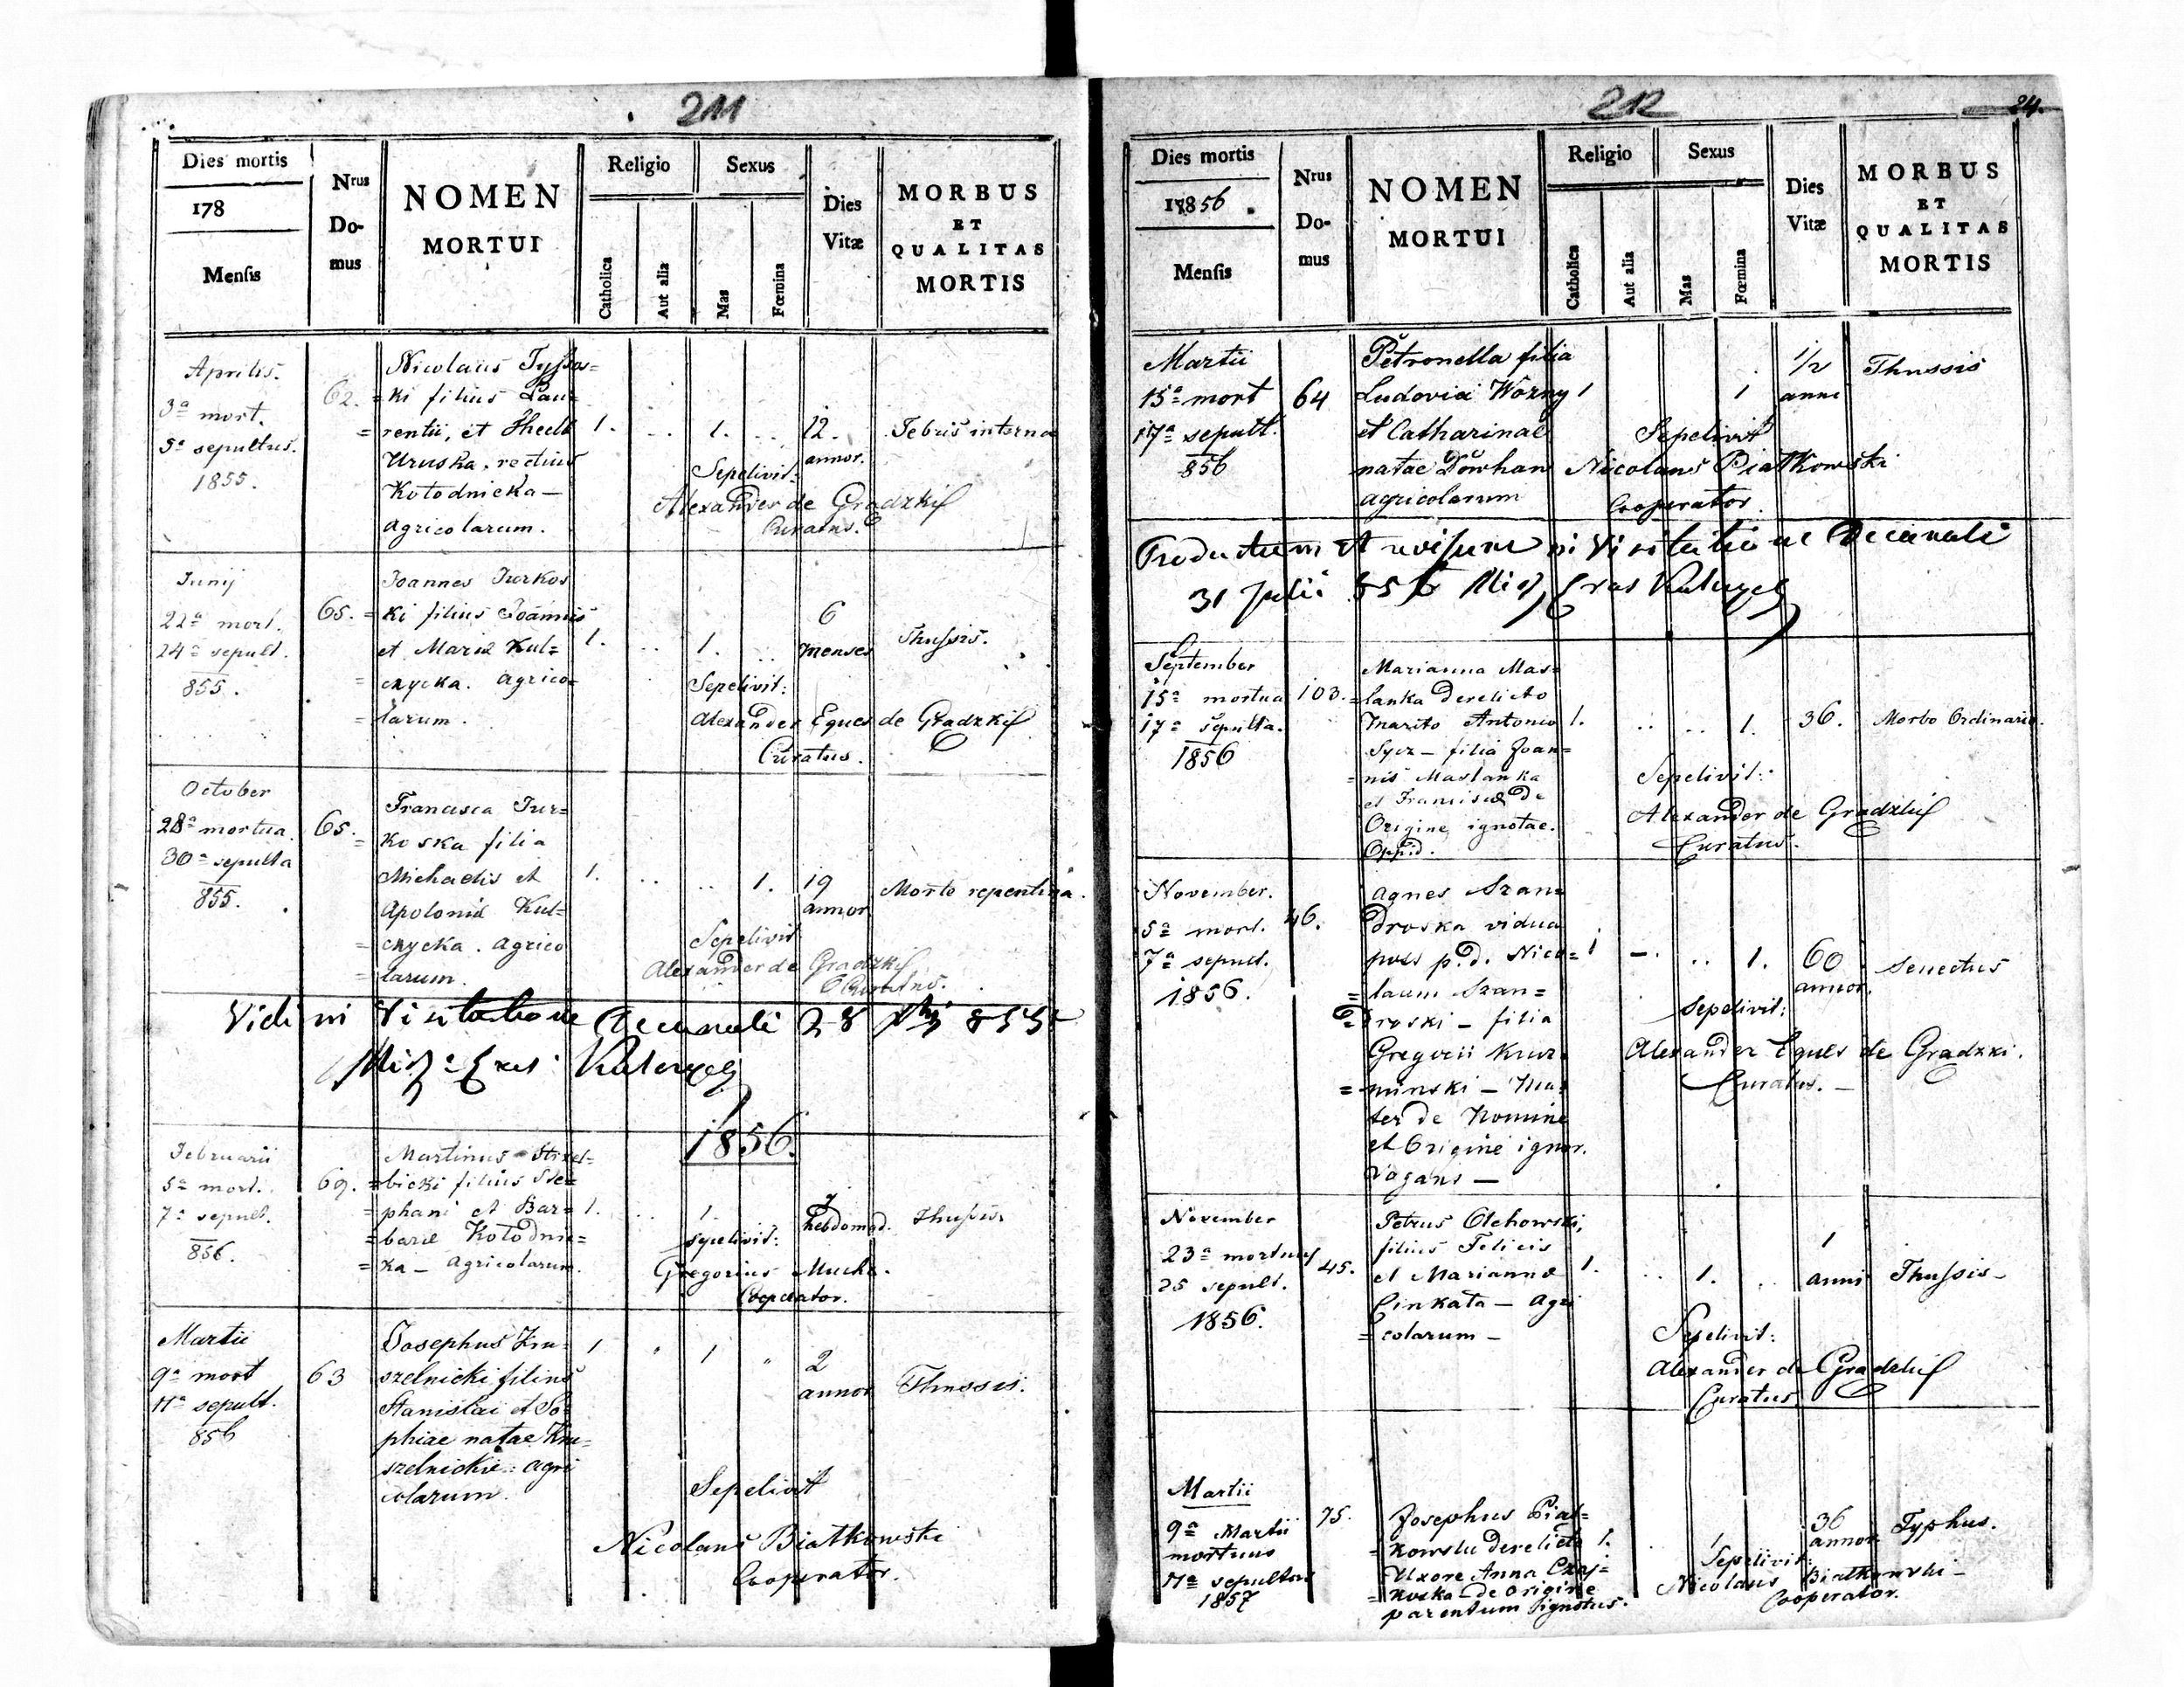 211
Dies mortis
178
Mensis
Nrus
Do-
mus
NOMEN
MORTUI
Religio
Catholica
Aut alia
Sexus
Mas
Fœmina
Dies
Vitæ
MORBUS
ET
QUALITAS
MORTIS
Aprilis.
3a mort.
5a sepultus.
1855.
62.
Nicolaus Tyssow=
=ki filius Lau=
=rentii, et Theclæ
Uruska, rectius
Kołodnicka —
Agricolarum.
1.
1.
12.
annor.
Febris interna
Sepelivit:
Alexander de Gradzki
Curatus.
Junij
22a mort.
24a sepult.
855.
65.
Joannes Jurkos
=ki filius Joannis
et Mariæ Kul=
=czycka. Agrico=
=larum.
1.
1.
6
menses
Thussis.
Sepelivit:
Alexander Eques de Gradzki
Curatus.
October
28a mortua.
30a sepulta
855.
65.
Francisca Jur=
=koska filia
Michaelis et
Apoloniæ Kul=
=czycka. Agrico
=larum.
1.
1.
19
annor
Morte repentina.
Sepelivit
Alexander de Gradzki
Curatus.
Vidi in Visitatione Decanali 28 855
1856.
Februarii
5a mort.
7a sepult.
856.
69.
Martinus Strzel=
=bicki filius Ste=
=phani et Bar=
=baræ Kołodnic=
=ka — Agricolarum.
1.
1.
7
hebdomad.
Thussis
Sepelivit:
Gregorius Mucha.
Cooperator.
Martii
9a mort
11a sepult.
856
63
Josephus Kru=
szelnicki filius
Stanislai et So=
phiae natae Kru=
szelnickie: agri
colarum.
1
"
1
"
2
annor
Thussis.
Sepelivit
Nicolaus Biatkowski
Cooperator.
212
24.
Dies mortis
1856.
Mensis
Nrus
Do-
mus
NOMEN
MORTUI
Religio
Catholica
Aut alia
Sexus
Mas
Fœmina
Dies
Vitæ
MORBUS
ET
QUALITAS
MORTIS
Martii
15a mort
17a sepult.
856
64
Petronella filia
Ludovici Wozny
et Catharinae
natae Dowhan
agricolarum
1
1
1/2
anni
Thussis
Sepelivit
Nicolaus Biatkowski
Cooperator.
Productum et revisum in Visitatione Decanali
31 Julii 856
September
15a mortua
17a sepulta.
1856
103.
Marianna Mas=
=lanka derelicto
marito Antonio
Sycz — filia Joan=
=nis Maslanka
et Franciscæ de
Origine ignotae.
Oppid.
1.
1.
36.
Morbo Ordinario.
Sepelivit:
Alexander de Gradzki
Curatus.
November.
5a mort.
7a sepult.
1856.
46.
Agnes Szan=
droska vidua
post p.d. Nico=
=laum Szan=
=droski — filia
Gregorii Kruz=
=minski — Ma=
ter de Nomine
et Origine ignor.
Vagans —
1
1.
60
annor.
Senectus
Sepelivit:
Alexander Eques de Gradzki.
Curatus. —
November
23a mortuus
25 sepult.
1856.
45.
Petrus Olchowski,
filius Felicis
et Mariannæ
Cinkata — Agri
=colarum —
1.
1.
1
anni
Thussis —
Sepelivit:
Alexander de Gradzki
Curatus.
Martii
9a Martii
mortuus
11a sepultus
1857
75.
Josephus Piat=
=kowski derelicta
Uxore Anna Czaj=
=koska — de origine
parentum ignotus.
1.
1.
36
annor
Typhus.
Sepelivit:
Nicolaus Biatkowski —
Cooperator.